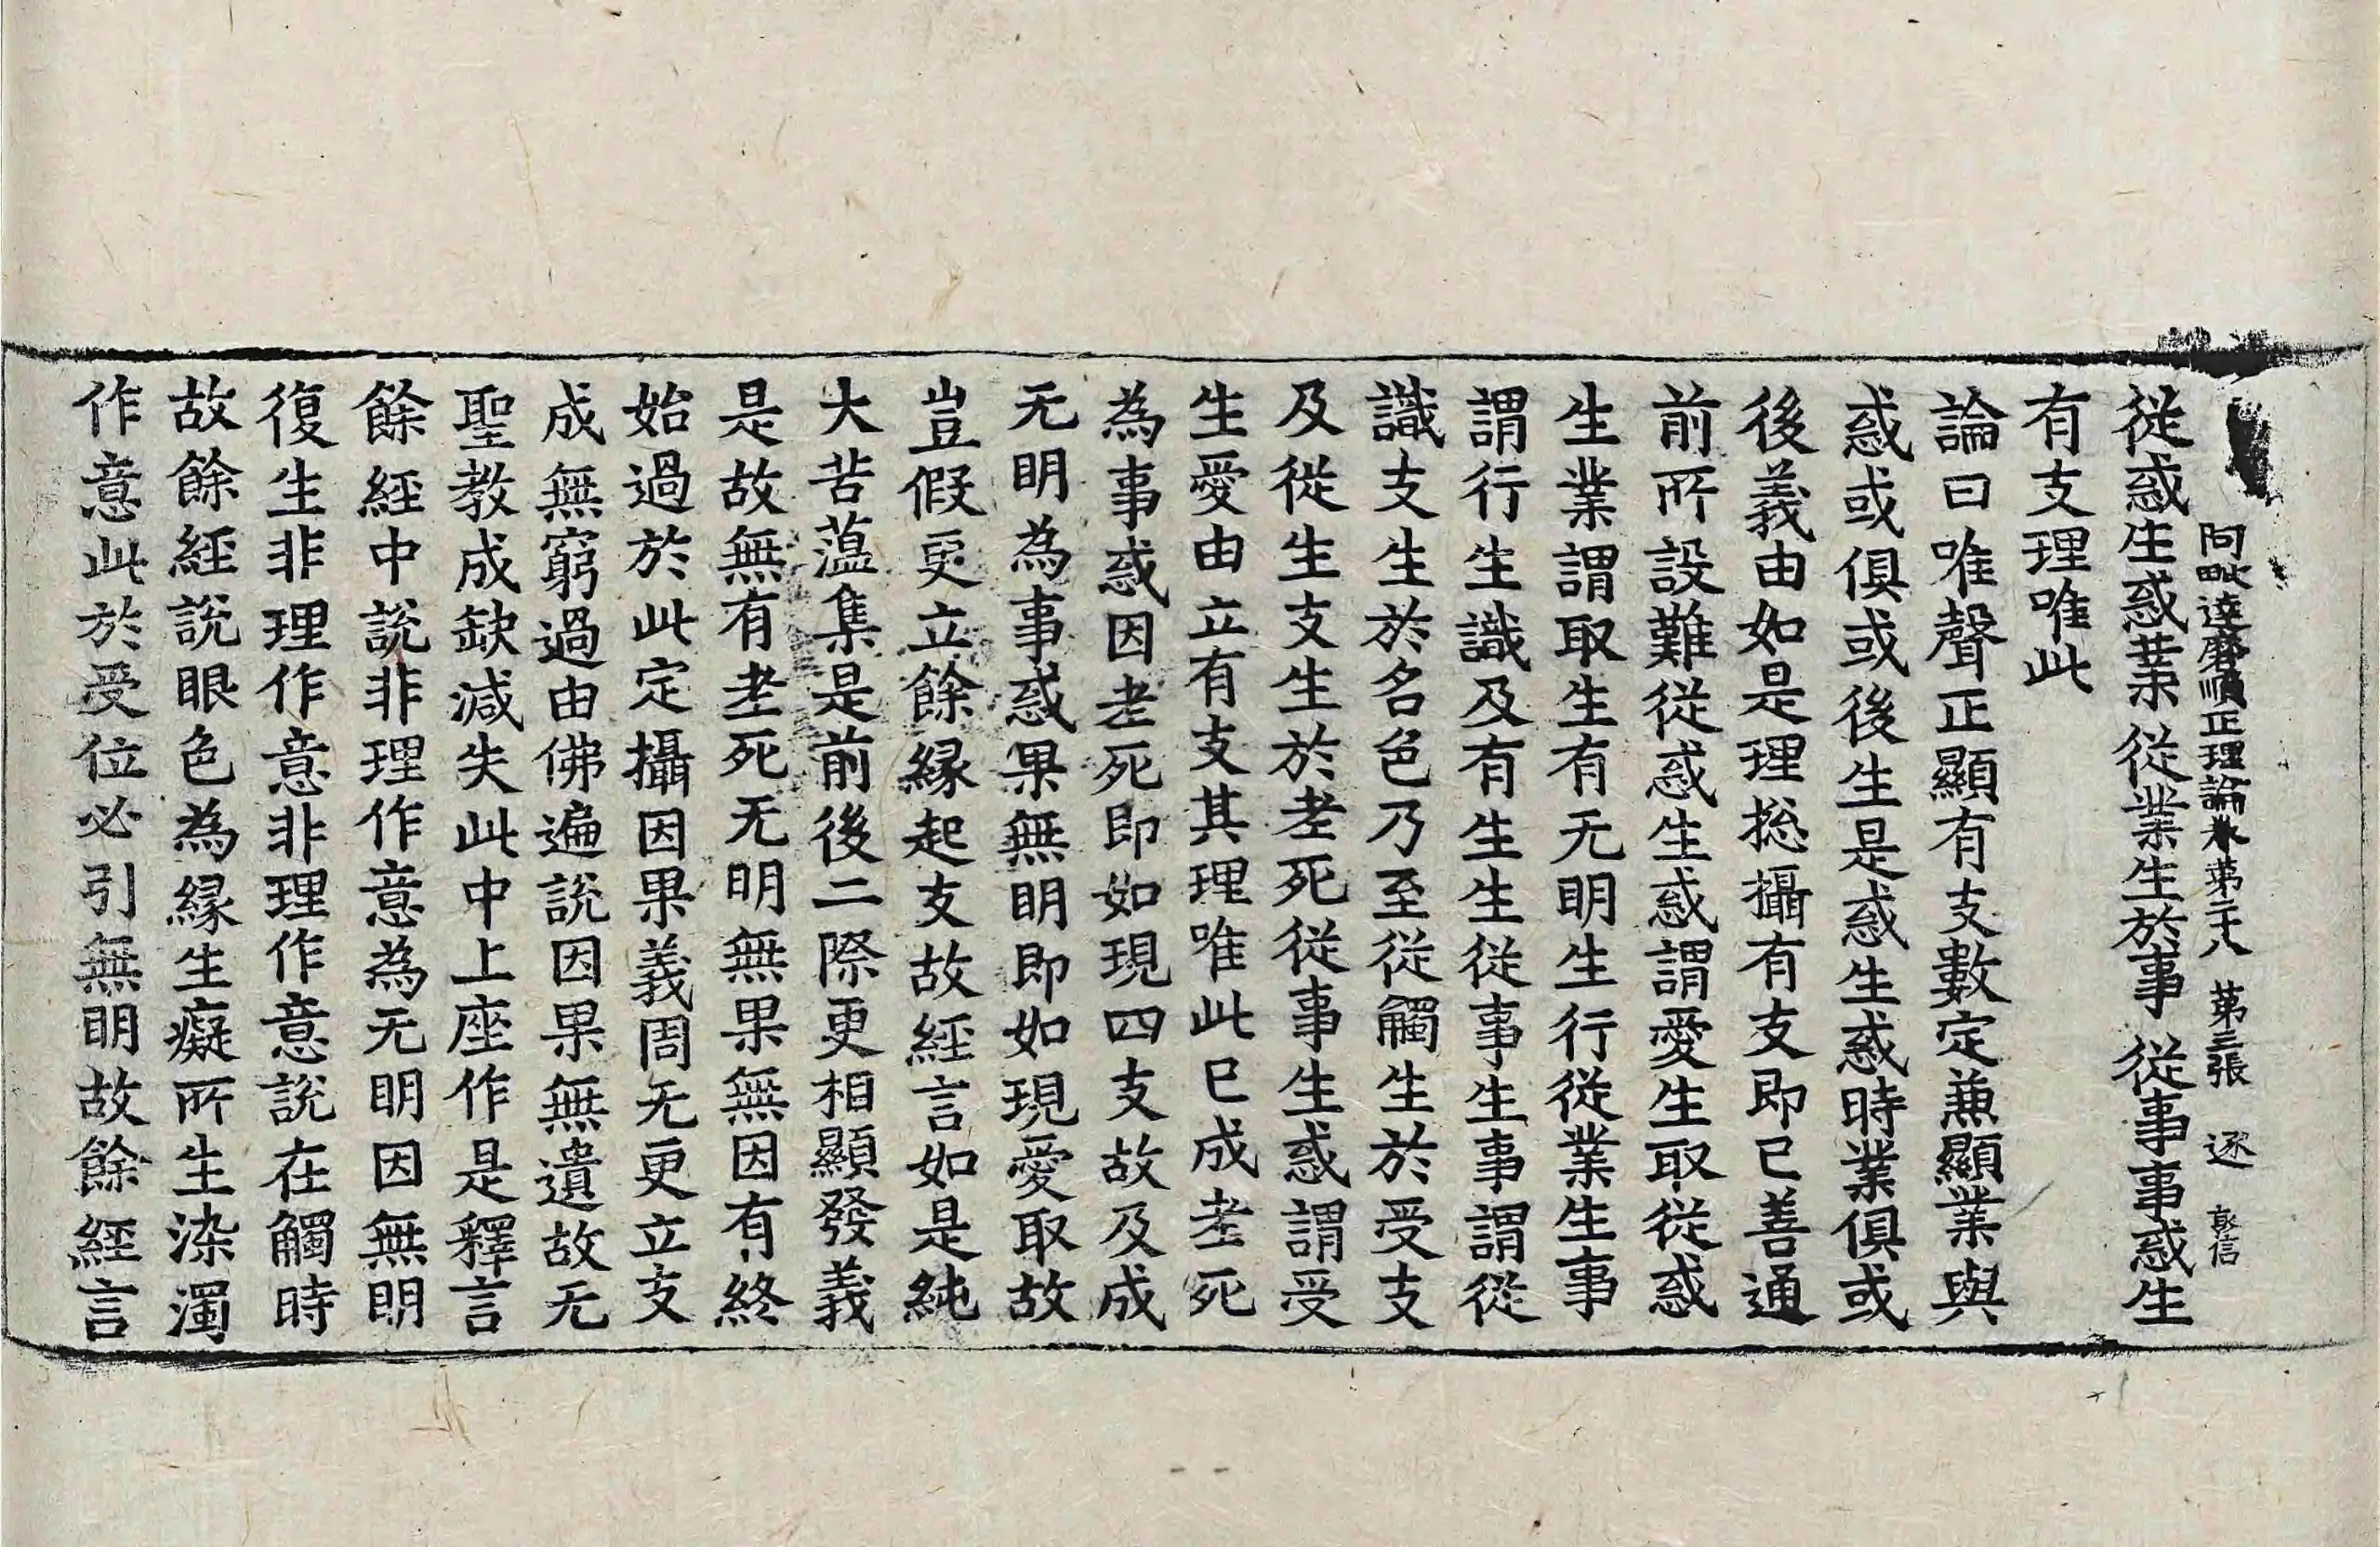 阿毗達磨順正理論卷第二十八 第三張 逐 彭信
從惑生惑業 從業生於事 從事事惑生
有支理唯此
論曰唯聲正顯有支數定兼顯業與
惑或俱或後生是惑生惑時業俱或
後義由如是理捴攝有支即已善通
前所設難從惑生惑謂愛生取從惑
生業謂取生有无明生行從業生事
謂行生識及有生生從事生事謂從
識支生於名色乃至從觸生於受支
及從生支生於老死從事生惑謂受
生愛由立有支其理唯此已成老死
為事惑因老死即如現四支故及成
无明為事惑果無明即如現愛取故
豈假更立餘緣起支故經言如是純
大苦蕰集是前後二際更相顯發義
是故無有老死无明無果無因有終
始過於此定攝因果義周无更立支
成無窮過由佛遍說因果無遺故无
聖教成缺減失此中上座作是釋言
餘經中說非理作意為无明因無明
復生非理作意非理作意說在觸時
故餘經說眼色為緣生癡所生染濁
作意此於受位必引無明故餘經言